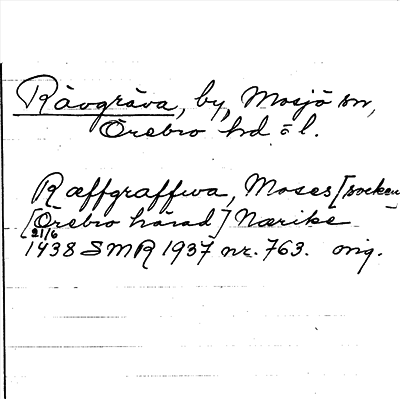 Rävgräva, by, Mosjö sn,
Örebro hd o l.
Ræffgraffwa, Moses [socken]
[Örebro härad] Nærike
21/6
1438 SMR 1937 nr. 763. orig.